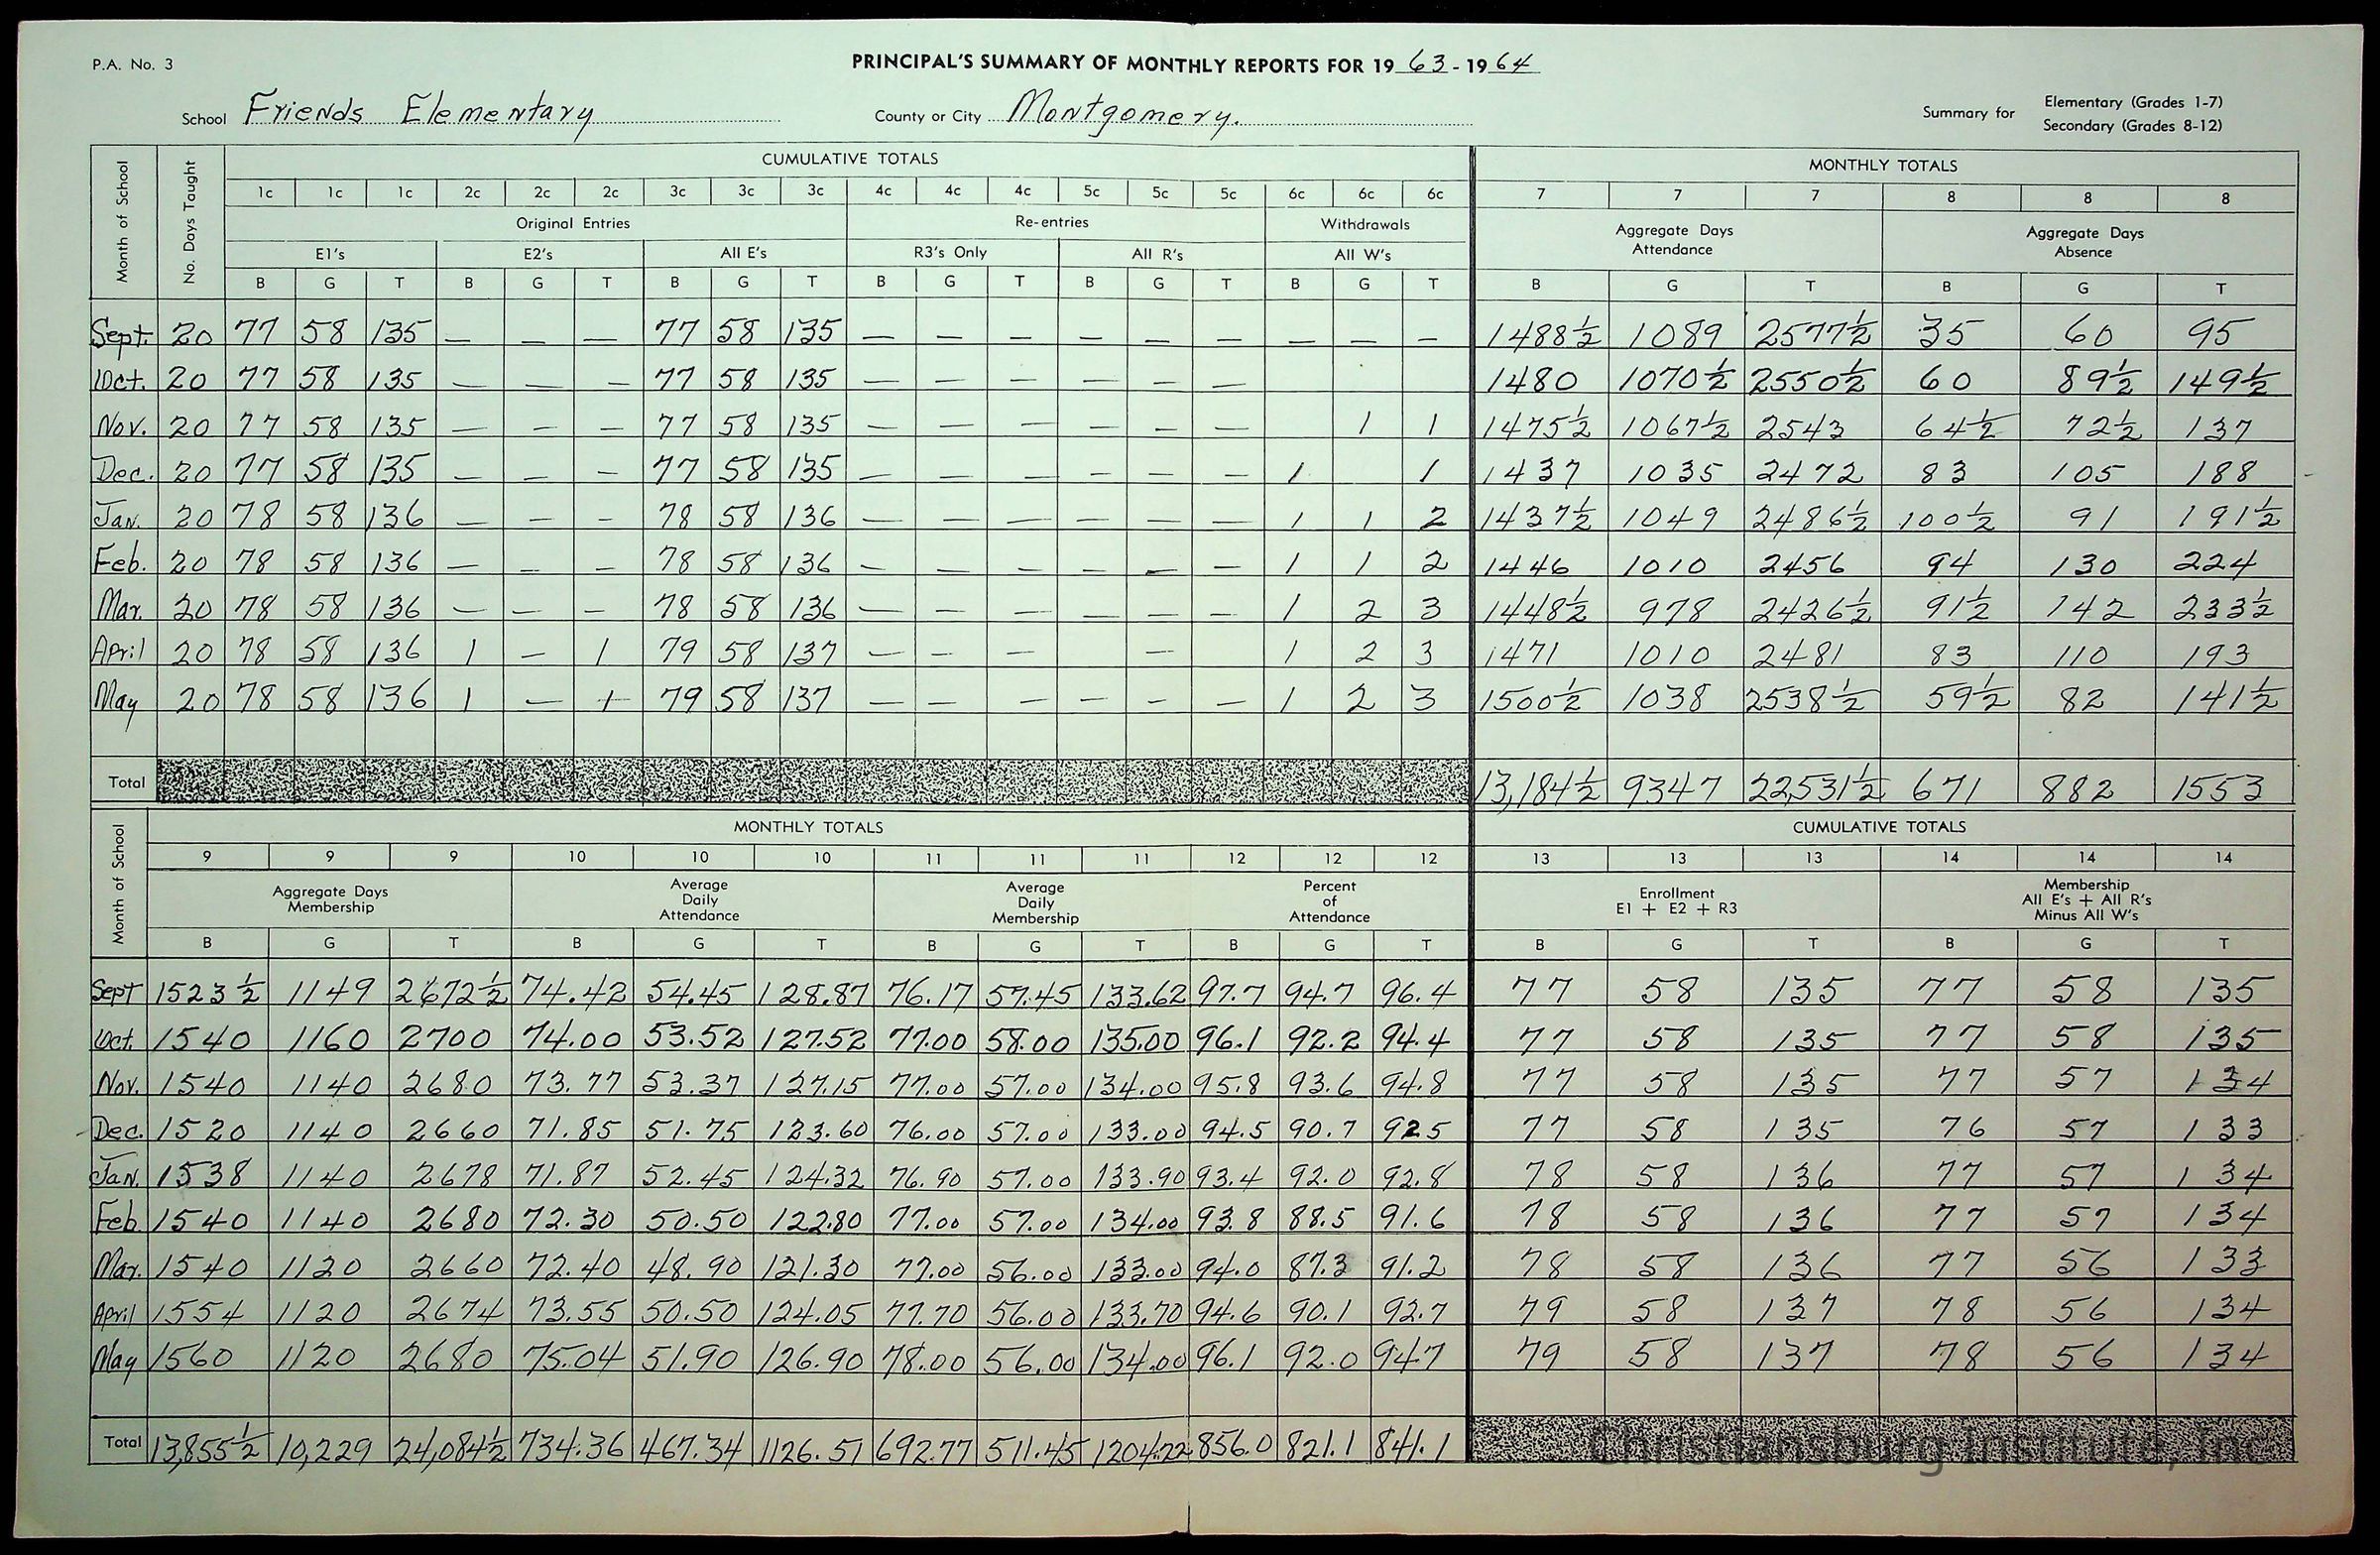 P.A. No. 3
PRINCIPAL'S SUMMARY OF MONTHLY REPORTS FOR 19 63 - 19 64
School Friends Elementary County or City Montgomery. Summary for Elementary (Grades 1-7)
Secondary (Grades 8-12)
Month of School No. Days Taught CUMULATIVE TOTALS MONTHLY TOTALS
1c 1c 1c 2c 2c 2c 3c 3c 3c 4c 4c 4c 5c 5c 5c 6c 6c 6c 7 7 7 8 8 8
Original Entries Re-entries Withdrawals Aggregate Days Attendance Aggregate Days Absence
E1's E2's All E's R3's Only All R's All W's
B G T B G T B G T B G T B G T B G T B G T B G T
Sept. 20 77 58 135 — — — 77 58 135 — — — — — — — — — 1488½ 1089 2577½ 35 60 95
Oct. 20 77 58 135 — — — 77 58 135 — — — — — — 1480 1070½ 2550½ 60 89½ 149½
Nov. 20 77 58 135 — — — 77 58 135 — — — — — — 1 1 1475½ 1067½ 2543 64½ 72½ 137
Dec. 20 77 58 135 — — — 77 58 135 — — — — — — 1 1 1437 1035 2472 83 105 188
Jan. 20 78 58 136 — — — 78 58 136 — — — — — — 1 1 2 1437½ 1049 2486½ 100½ 91 191½
Feb. 20 78 58 136 — — — 78 58 136 — — — — — — 1 1 2 1446 1010 2456 94 130 224
Mar. 20 78 58 136 — — — 78 58 136 — — — — — — 1 2 3 1448½ 978 2426½ 91½ 142 233½
April 20 78 58 136 1 — 1 79 58 137 — — — — 1 2 3 1471 1010 2481 83 110 193
May 20 78 58 136 1 — 1 79 58 137 — — — — — — 1 2 3 1500½ 1038 2538½ 59½ 82 141½
Total 13,184½ 9347 22,531½ 671 882 1553
Month of School MONTHLY TOTALS CUMULATIVE TOTALS
9 9 9 10 10 10 11 11 11 12 12 12 13 13 13 14 14 14
Aggregate Days Membership Average Daily Attendance Average Daily Membership Percent of Attendance Enrollment E1 + E2 + R3 Membership All E's + All R's Minus All W's
B G T B G T B G T B G T B G T B G T
Sept 1523½ 1149 2672½ 74.42 54.45 128.87 76.17 57.45 133.62 97.7 94.7 96.4 77 58 135 77 58 135
Oct. 1540 1160 2700 74.00 53.52 127.52 77.00 58.00 135.00 96.1 92.2 94.4 77 58 135 77 58 135
Nov. 1540 1140 2680 73.77 53.37 127.15 77.00 57.00 134.00 95.8 93.6 94.8 77 58 135 77 57 134
Dec. 1520 1140 2660 71.85 51.75 123.60 76.00 57.00 133.00 94.5 90.7 92.5 77 58 135 76 57 133
Jan. 1538 1140 2678 71.87 52.45 124.32 76.90 57.00 133.90 93.4 92.0 92.8 78 58 136 77 57 134
Feb. 1540 1140 2680 72.30 50.50 122.80 77.00 57.00 134.00 93.8 88.5 91.6 78 58 136 77 57 134
Mar. 1540 1120 2660 72.40 48.90 121.30 77.00 56.00 133.00 94.0 87.3 91.2 78 58 136 77 56 133
April 1554 1120 2674 73.55 50.50 124.05 77.70 56.00 133.70 94.6 90.1 92.7 79 58 137 78 56 134
May 1560 1120 2680 75.04 51.90 126.90 78.00 56.00 134.00 96.1 92.0 94.7 79 58 137 78 56 134
Total 13,855½ 10,229 24,084½ 734.36 467.34 1126.51 692.77 511.45 1204.22 856.0 821.1 841.1
Christiansburg Institute, Inc